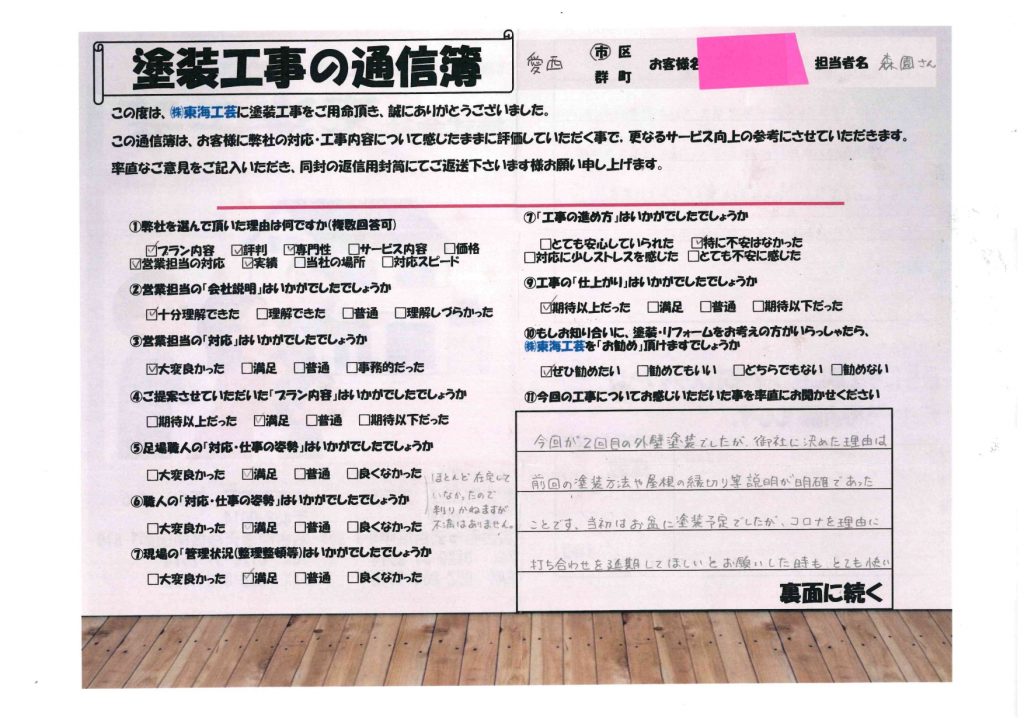 塗装工事の通信簿
愛西 市 区
群 町
お客様名
担当者名 森園さん
この度は、㈱東海工芸に塗装工事をご用命頂き、誠にありがとうございました。
この通信簿は、お客様に弊社の対応・工事内容について感じたままに評価していただく事で、更なるサービス向上の参考にさせていただきます。
率直なご意見をご記入いただき、同封の返信用封筒にてご返送下さいます様お願い申し上げます。
①弊社を選んで頂いた理由は何ですか(複数回答可)
☑プラン内容 ☑評判 ☑専門性 □サービス内容 □価格
☑営業担当の対応 ☑実績 □当社の場所 □対応スピード
②営業担当の「会社説明」はいかがでしたでしょうか
☑十分理解できた □理解できた □普通 □理解しづらかった
③営業担当の「対応」はいかがでしたでしょうか
☑大変良かった □満足 □普通 □事務的だった
④ご提案させていただいた「プラン内容」はいかがでしたでしょうか
□期待以上だった ☑満足 □普通 □期待以下だった
⑤足場職人の「対応・仕事の姿勢」はいかがでしたでしょうか
□大変良かった ☑満足 □普通 □良くなかった
⑥職人の「対応・仕事の姿勢」はいかがでしたでしょうか
□大変良かった ☑満足 □普通 □良くなかった
ほとんど在宅して
いなかったので
判りかねますが
不満はありません。
⑦現場の「管理状況(整理整頓等)はいかがでしたでしょうか
□大変良かった ☑満足 □普通 □良くなかった
⑦「工事の進め方」はいかがでしたでしょうか
□とても安心していられた ☑特に不安はなかった
□対応に少しストレスを感じた □とても不安に感じた
⑨工事の「仕上がり」はいかがでしたでしょうか
☑期待以上だった □満足 □普通 □期待以下だった
⑩もしお知り合いに、塗装・リフォームをお考えの方がいらっしゃたら、
㈱東海工芸を「お勧め」頂けますでしょうか
☑ぜひ勧めたい □勧めてもいい □どちらでもない □勧めない
⑪今回の工事についてお感じいただいた事を率直にお聞かせください
今回が2回目の外壁塗装でしたが、御社に決めた理由は
前回の塗装方法や屋根の縁切り等説明が明確であった
ことです。当初はお盆に塗装予定でしたが、コロナを理由に
打ち合わせを延期してほしいとお願いした時も、とても快い
裏面に続く